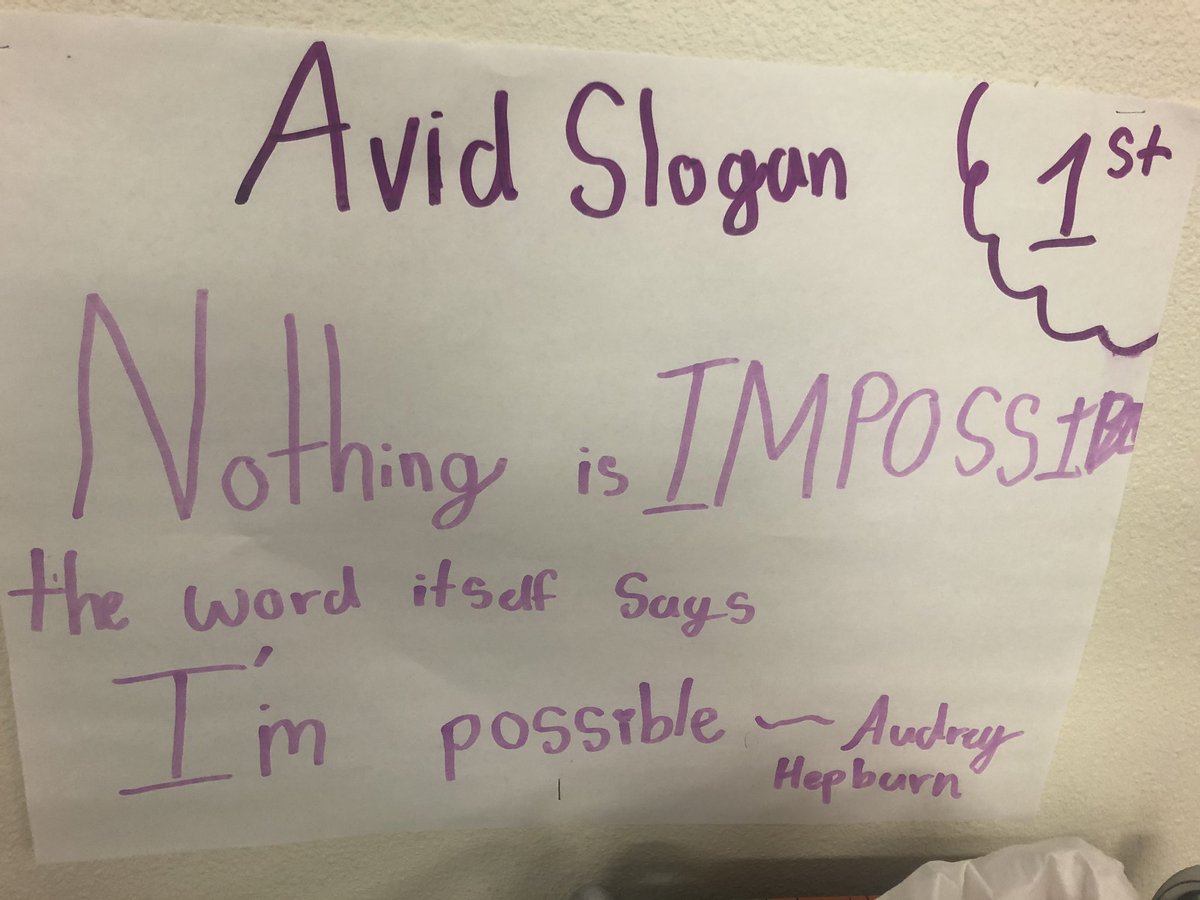 Avid Slogan
1st
Nothing is IMPOSSIBL
the word itself says
I'm possible — Audrey
Hepburn